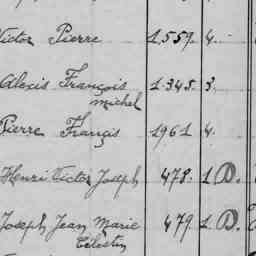 Victor Pierre 1.559. 4.
Alexis François 1.345. 3.
michel
Pierre Françis 1961 4.
Henri Victor Joseph 478. 1 D.
Joseph Jean Marie 479. 1. D.
Célestin